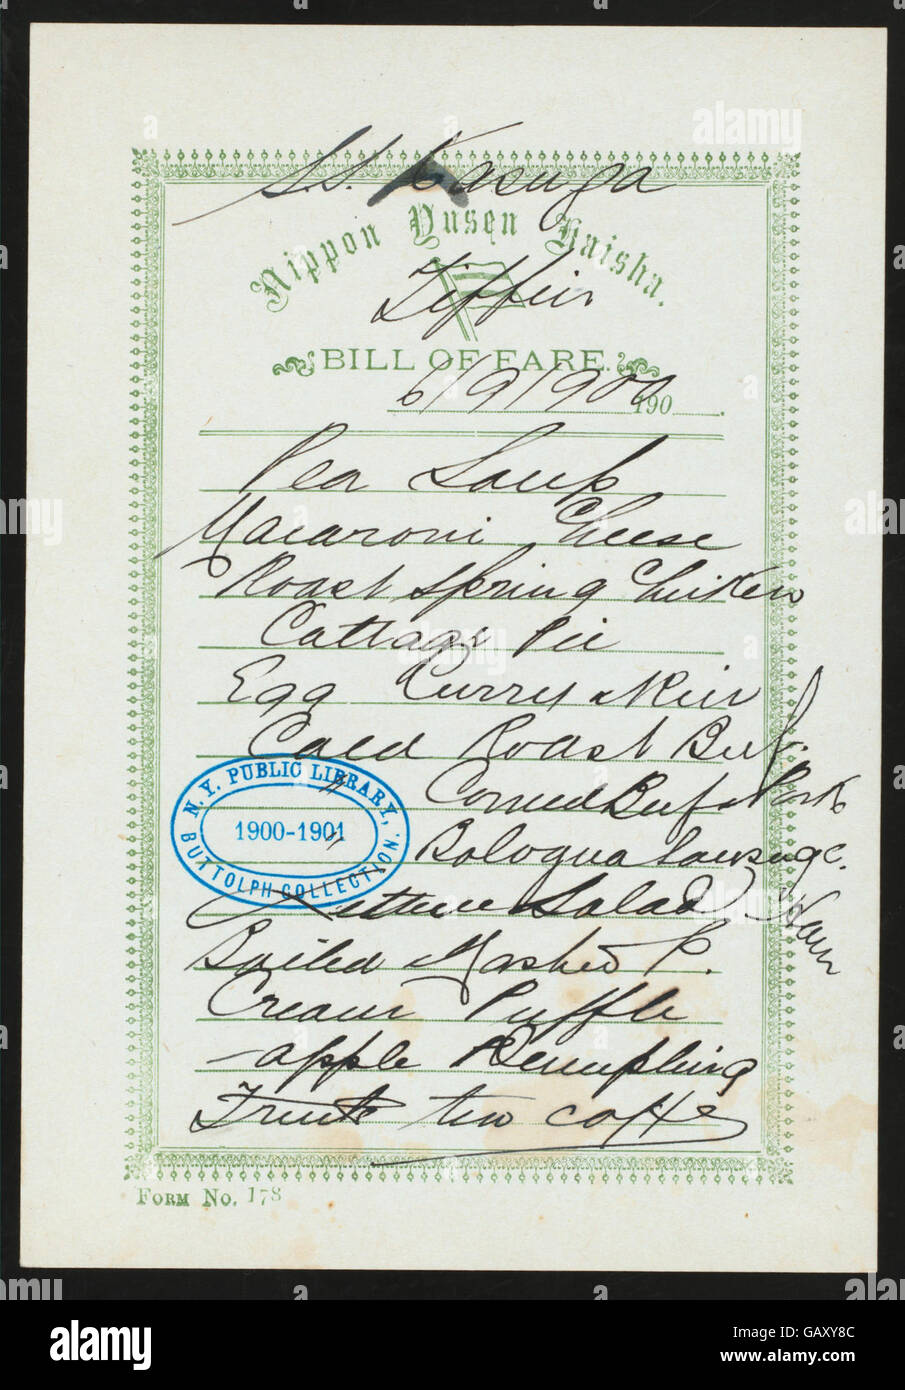 S.S. Kasuga
Nippon Yusen Kaisha.
Tiffin
BILL OF FARE.
6/9/1900 190
Pea Soup
Macaroni Cheese
Roast Spring Chicken
Cottage Pie
Egg Curry &
Cold Roast Beef.
" Corned Beef & Pork
" Bologna Sausage.
Ham
Lettuce Salad
Boiled Mashed P.
Cream Puffle
apple Dumpling
Fruits tea coffe
N.Y. PUBLIC LIBRARY,
1900-1901
BUTTOLPH COLLECTION.
FORM No. 178
alamy
Image ID: GAXY8C
www.alamy.com